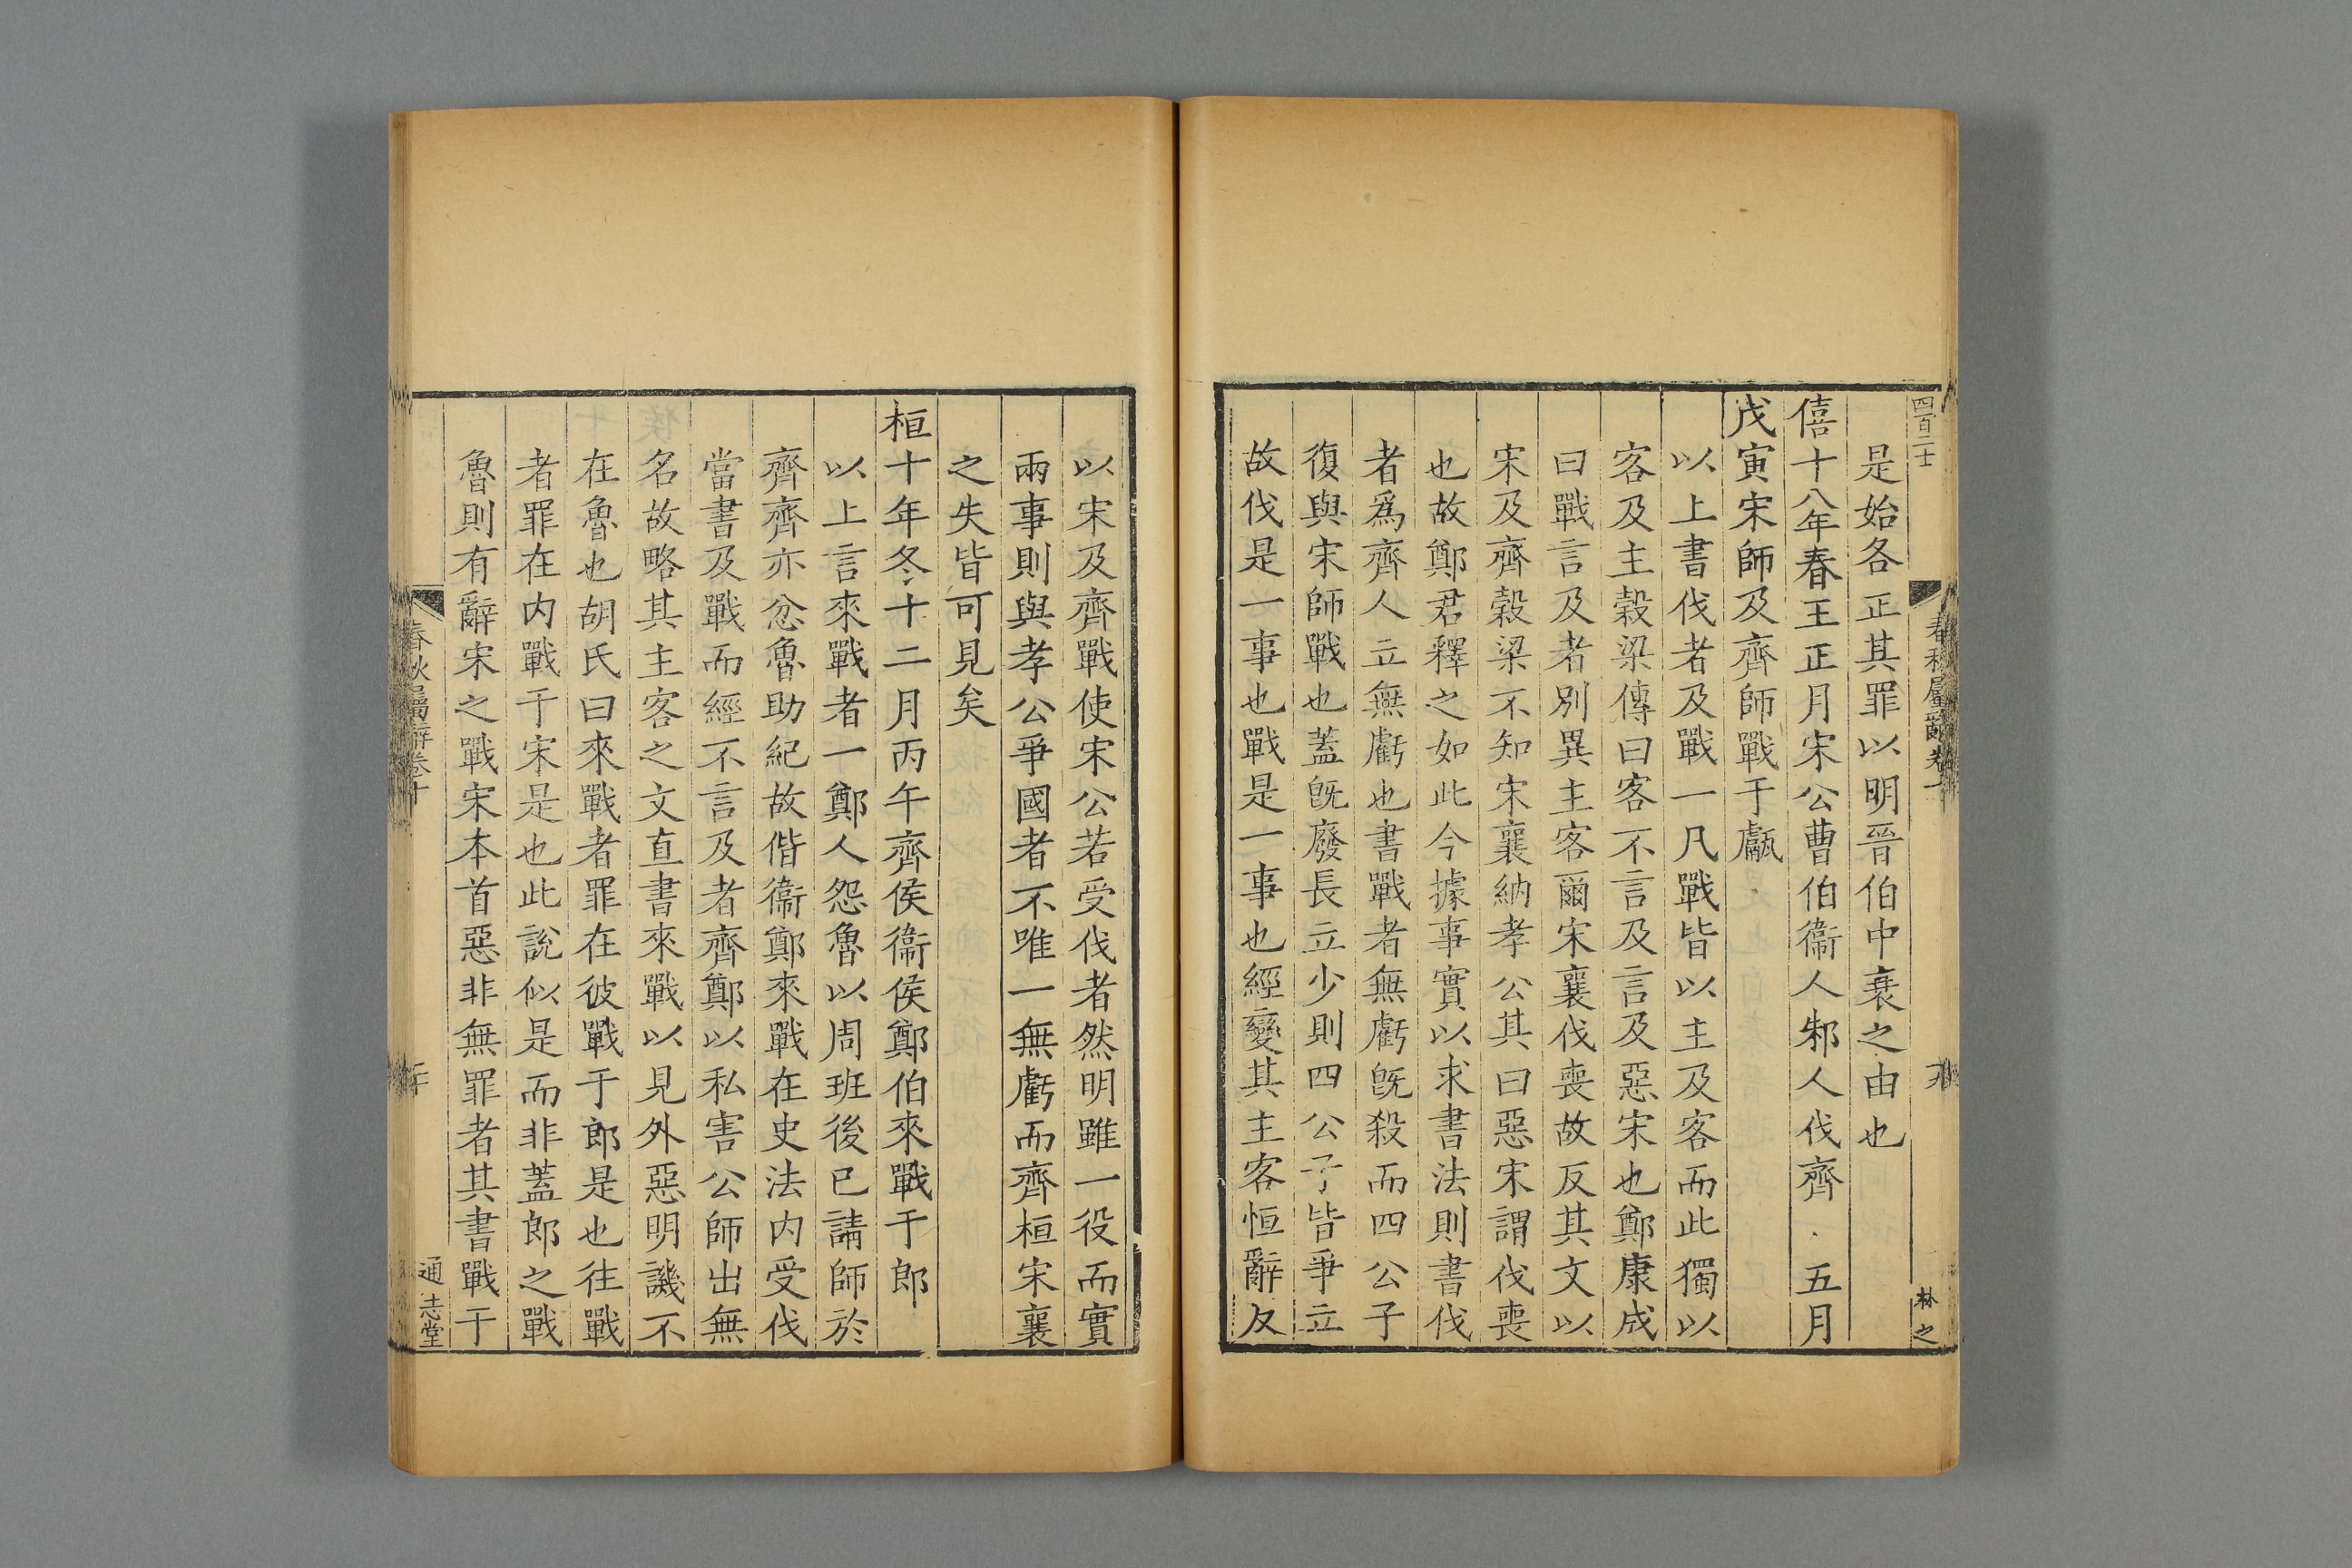 四百二十
是始各正其罪以明晉伯中衰之由也
僖十八年春王正月宋公曹伯衞人邾人伐齊 五月
戊寅宋師及齊師戰于甗
以上書伐者及戰一凡戰皆以主及客而此獨以
客及主穀梁傳曰客不言及言及惡宋也鄭康成
曰戰言及者別異主客爾宋襄伐喪故反其文以
宋及齊穀梁不知宋襄納孝公其曰惡宋謂伐喪
也故鄭君釋之如此今據事實以求書法則書伐
者爲齊人立無虧也書戰者無虧旣殺而四公子
復與宋師戰也蓋旣廢長立少則四公子皆爭立
故伐是一事也戰是一事也經變其主客恒辭反
以宋及齊戰使宋公若受伐者然明雖一役而實
兩事則與孝公爭國者不唯一無虧而齊桓宋襄
之失皆可見矣
桓十年冬十二月丙午齊侯衞侯鄭伯來戰于郎
以上言來戰者一鄭人怨魯以周班後已請師於
齊齊亦忿魯助紀故偕衞鄭來戰在史法内受伐
當書及戰而經不言及者齊鄭以私害公師出無
名故略其主客之文直書來戰以見外惡明譏不
在魯也胡氏曰來戰者罪在彼戰于郎是也往戰
者罪在内戰于宋是也此說似是而非蓋郎之戰
魯則有辭宋之戰宋本首惡非無罪者其書戰于
春秋屬辭卷十
通志堂